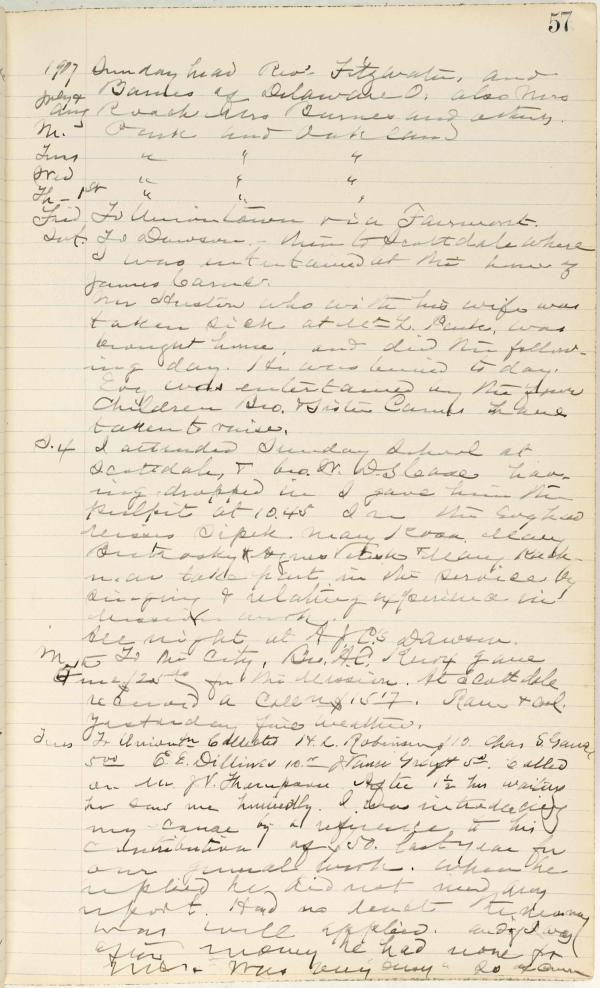 57
1907 Sunday had Rev. Fitzwater, and
July & Barnes of Delaware O. also Mrs
Aug Roach Mrs Barnes and others.
M. Park and Oakland
Tues " " "
Wed " " "
Th - 1st " " "
Frid To Uniontown via Fairmont.
Sat. To Dawson - then to Scottdale where
I was entertained at the home of
James Carns.
Mr Huston who with his wife was
taken sick at Mt. L. Park, was
brought home, and died the follow-
ing day. He was buried to day.
Evg was entertained by the
Children Bro. & Sister Carns have
taken to raise.
S. 4 I attended Sunday School at
Scottdale, & bro. W. hav-
ing dropped in I gave him the
pulpit at 10.45 In the Evg had
Mary Mary
& Agnes & Mary
take part in the service by
singing & relating experience in
Mission work.
All night at A J C's Dawson.
M To the City, Bro. A.C. Knox gave
me $25 00 for the Mission. At Scottdale
received a Coll of 15 17. Rain & cool.
Yesterday fine weather.
Tues To Union Collected H. L. Robinson $10. Chas S.
5 00 E. E. 10 00 5 00. Called
on Mr. J V. Thompson After 1 1/2 hrs waiting
he saw me kindly. I was introducing
my cause by a reference to his
Contribution of $50. last year for
our general work. When he
replied he did not need any
report. Had no doubt the money
was well applied. and if I was
after money he had none for
me. - Was very busy - So